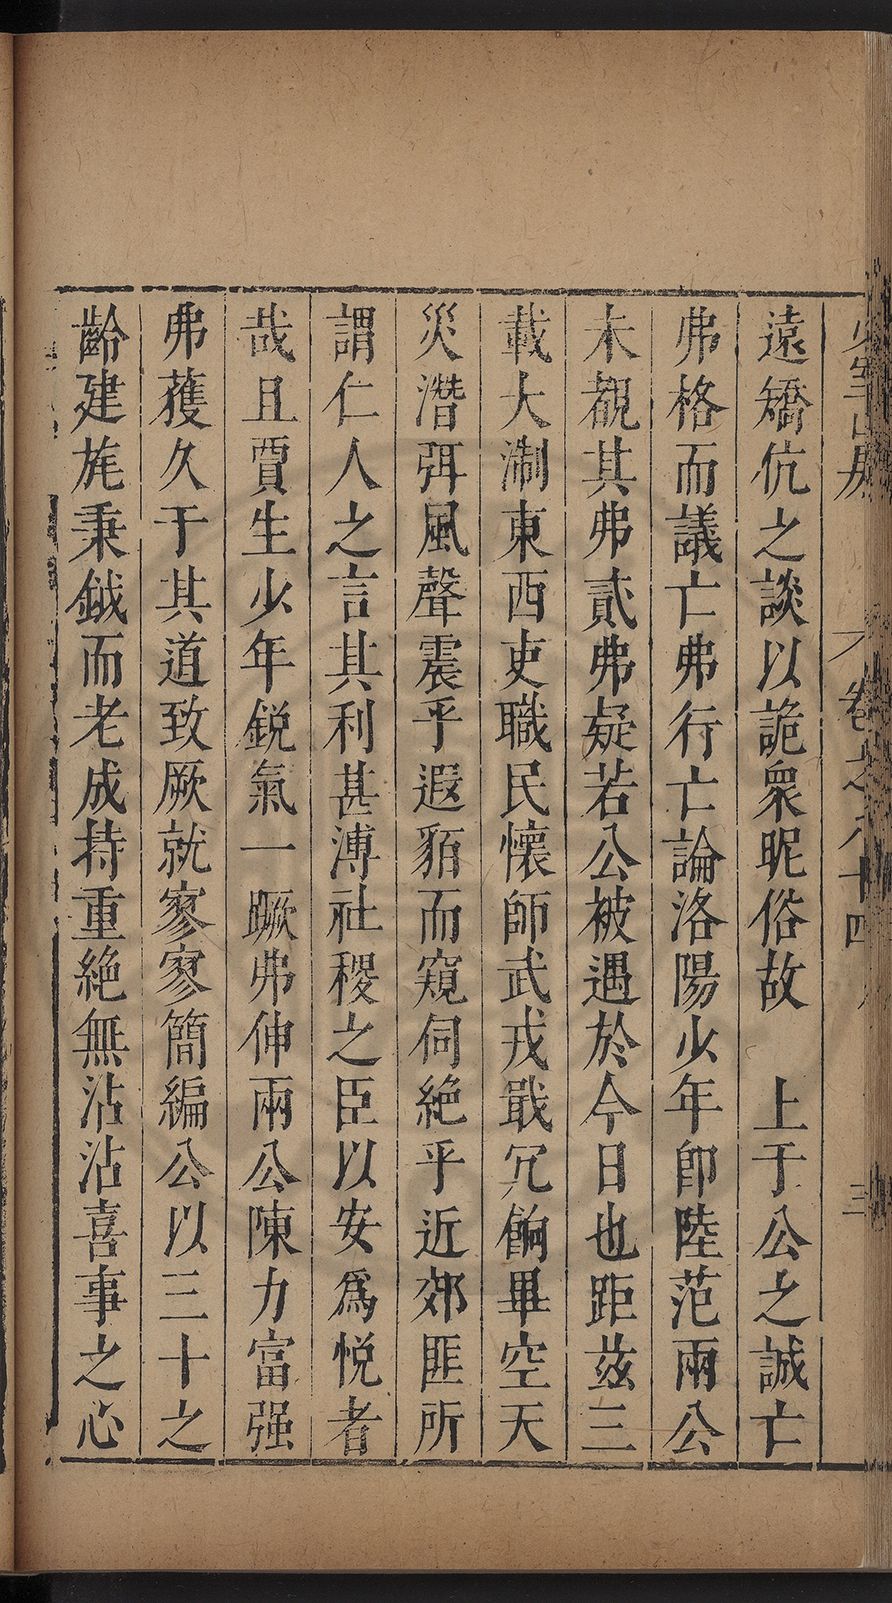 少室山房 卷之八十四 三
遠矯伉之談以詭衆昵俗故　上于公之誠亡
弗格而議亡弗行亡論洛陽少年卽陸范兩公
未覩其弗貳弗疑若公被遇於今日也距兹三
載大淛東西吏職民懷師武戎戢冗餉畢空天
災潛弭風聲震乎遐貊而窺伺絶乎近郊匪所
謂仁人之言其利甚溥社稷之臣以安爲悅者
哉且賈生少年鋭氣一蹶弗伸兩公陳力富强
弗蒦久于其道致厥就寥寥簡編公以三十之
齡建旄秉鉞而老成持重絶無沾沾喜事之心